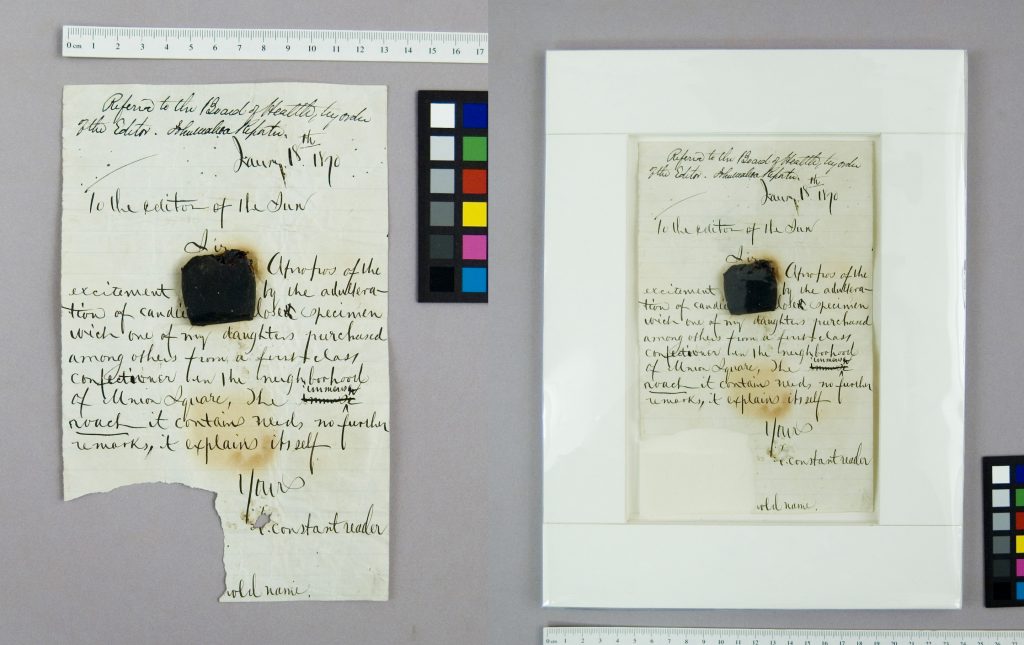 0 cm 1 2 3 4 5 6 7 8 9 10 11 12 13 14 15 16 17
Referd to the Board of Health, by order
of the Editor. Reporter.
Janry 18th 1870
To the editor of the Sun
Sir
Apropos of the
excitement by the adultera-
tion of candie close specimen
wich one of my daughters purchased
among others from a first class
confectioner in the neighborhood
of Union Square, The immense
roach it contain needs no further
remarks, it explains itself
Yours
constant reader
old name.
Referd to the Board of Health, by order
of the Editor. Reporter.
Janry 18th 1870
To the editor of the Sun
Sir
Apropos of the
excitement by the adultera-
tion of candie close specimen
wich one of my daughters purchased
among others from a first class
confectioner in the neighborhood
of Union Square, The immense
roach it contain needs no further
remarks, it explains itself
Yours
constant reader
old name.
0 cm 1 2 3 4 5 6 7 8 9 10 11 12 13 14 15 16 17 18 19 20 21 22